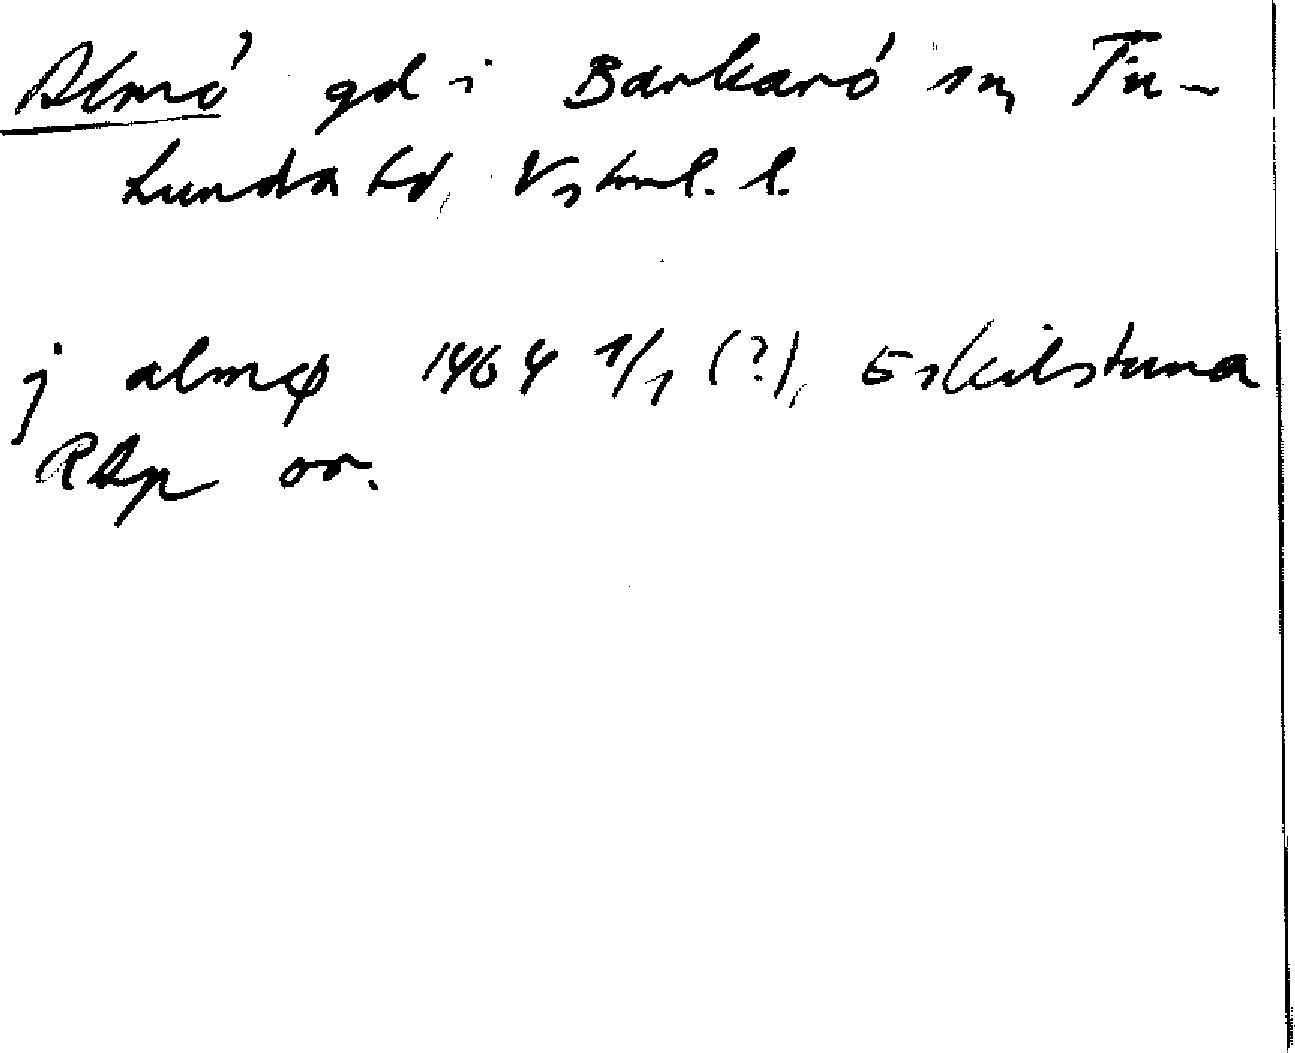 Almö gd i Barkarö sn, Tu-
hundra hd, Vstml. l.
j almø 1464 1/1 (?), Eskilstuna
RAp or.